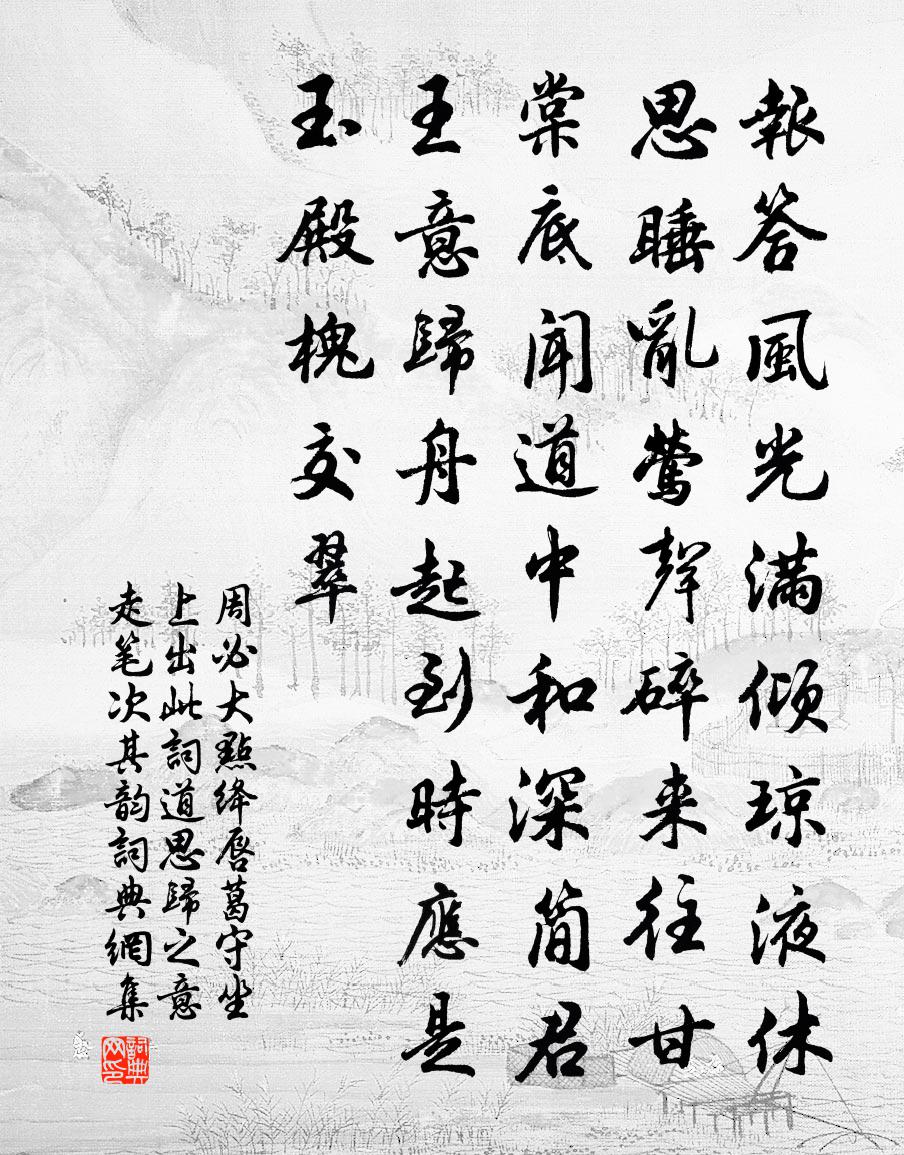 報答風光滿傾琼液休
思睡亂鶯聲碎来往甘
棠底闻道中和深简君
王意歸舟起到時應是
玉殿槐交翠
周必大點绛唇葛守坐
上出此詞道思歸之意
走笔次其韵詞典網集